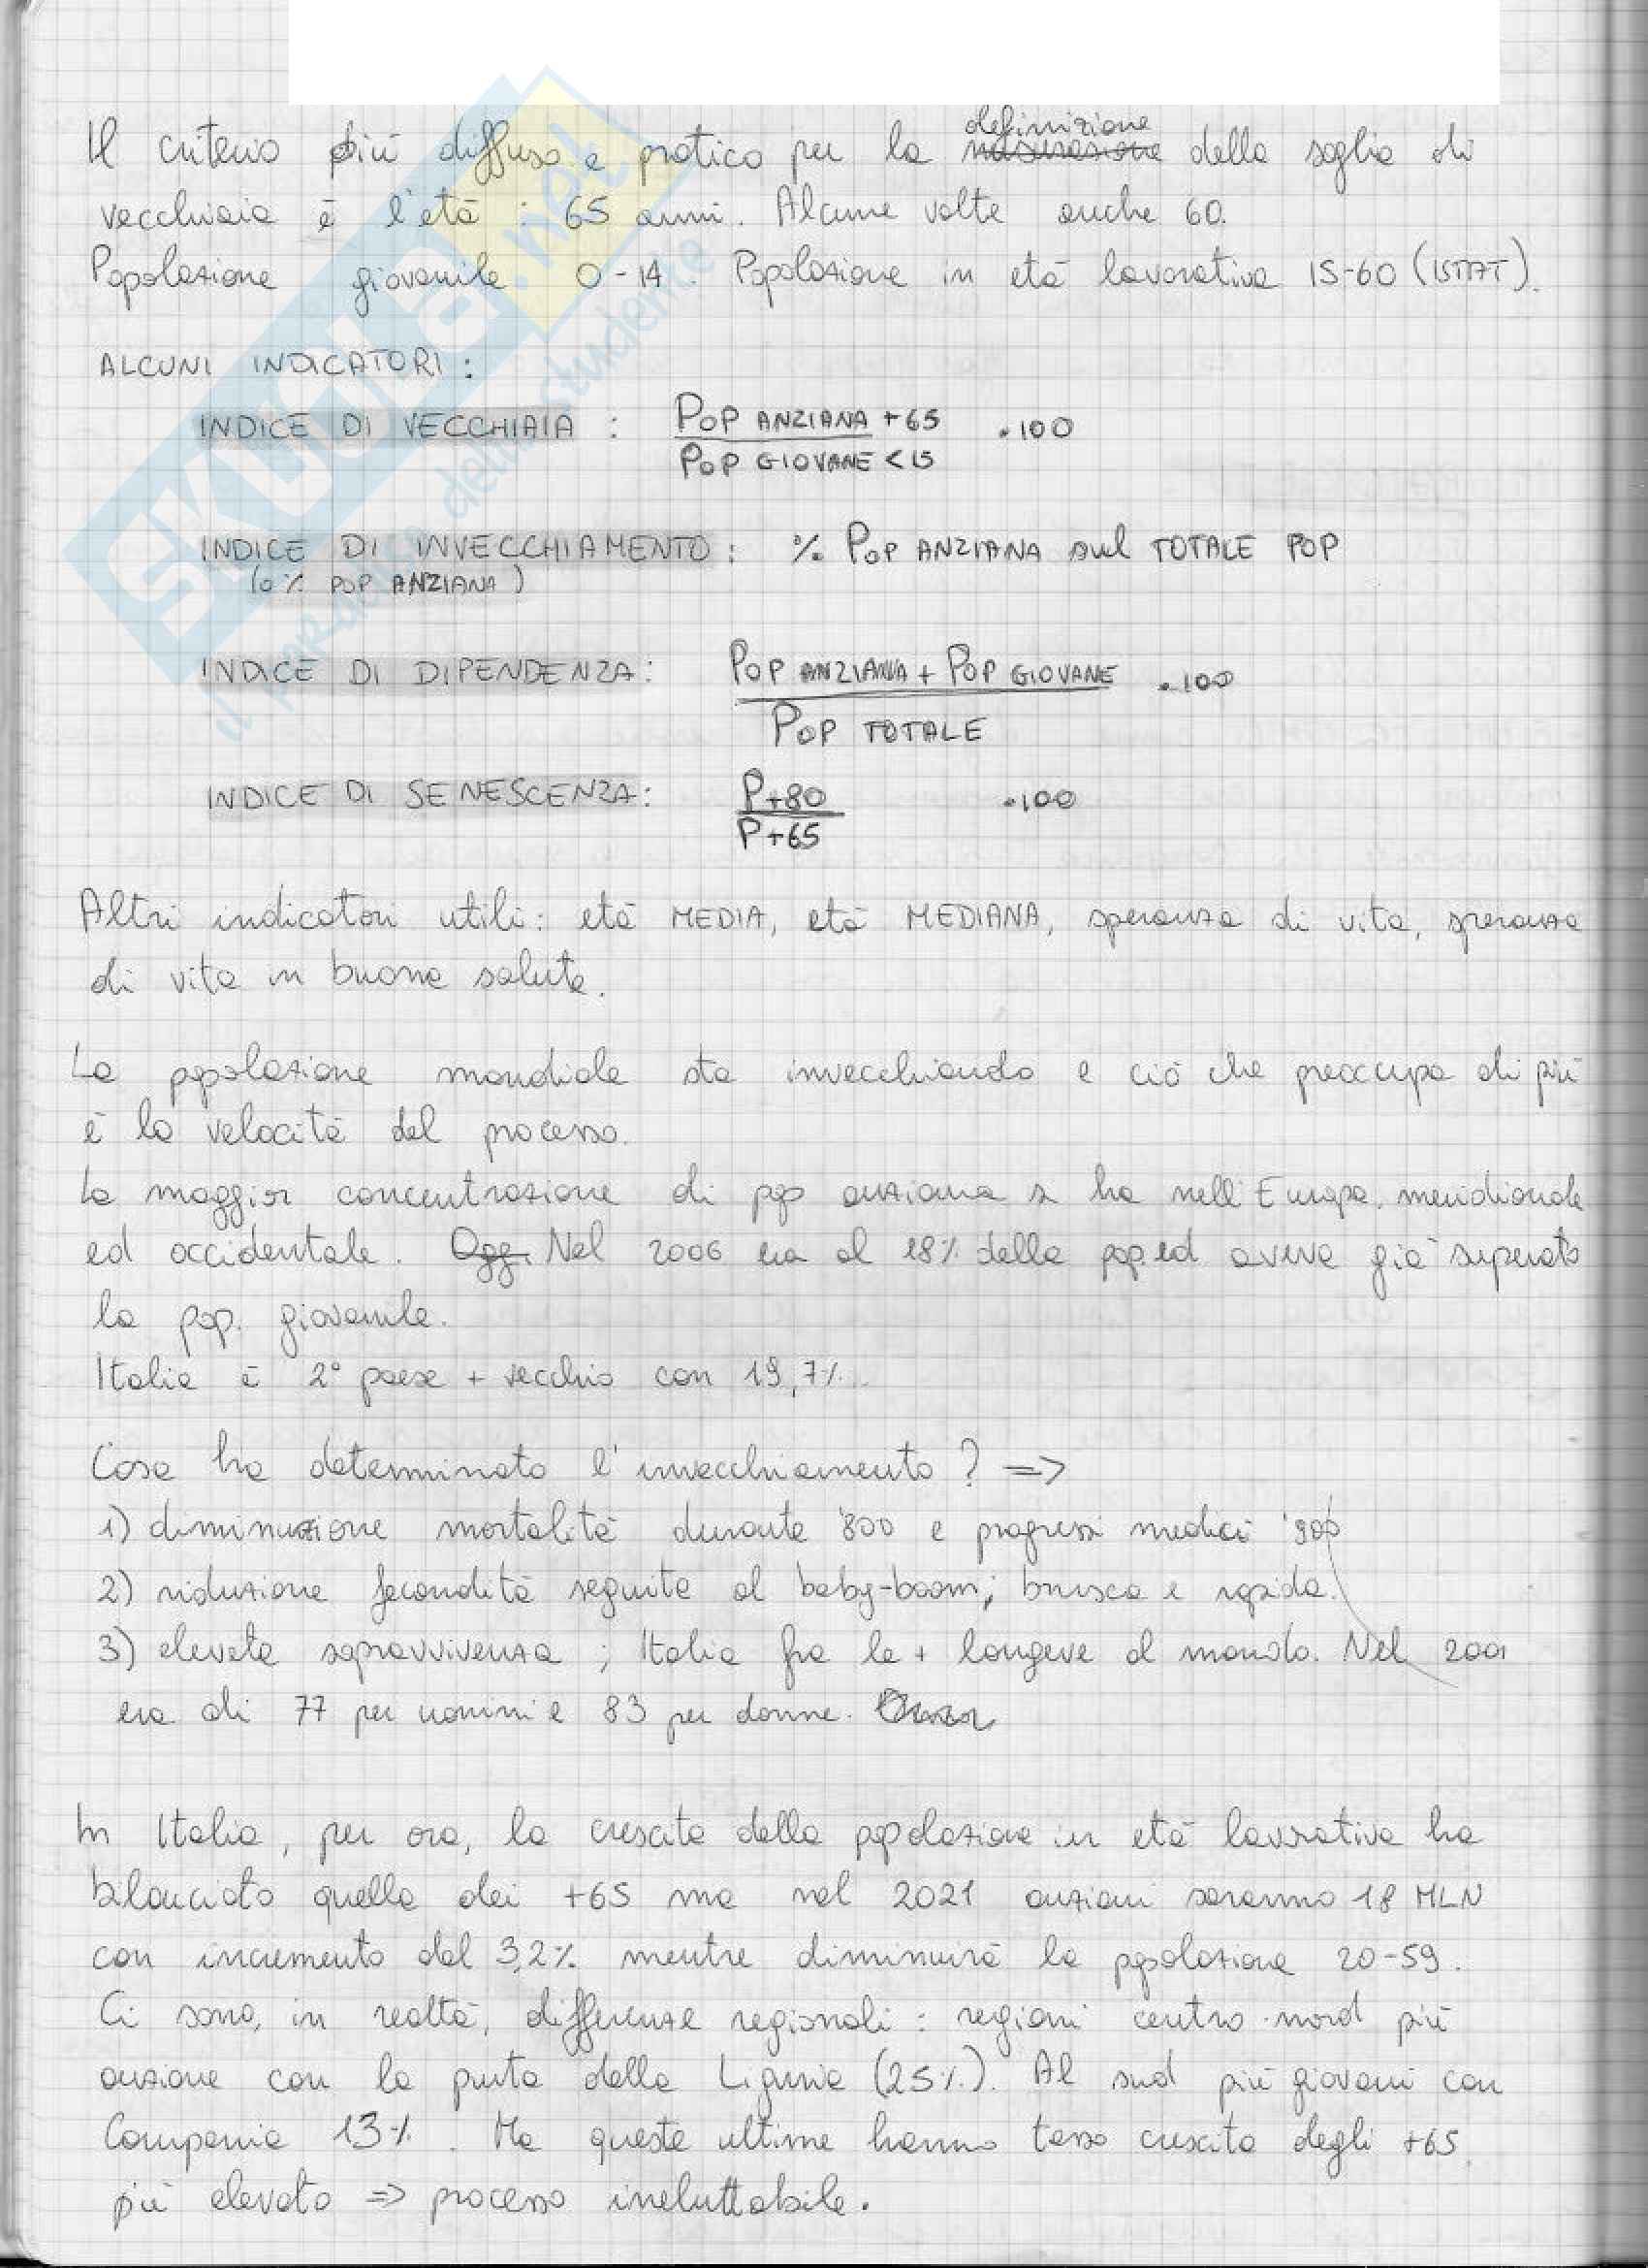 Il criterio più diffuso e pratico per la definizione della soglia di
vecchiaia è l'età : 65 anni. Alcune volte anche 60.
Popolazione giovanile 0-14. Popolazione in età lavorativa 15-60 (ISTAT).
ALCUNI INDICATORI :
INDICE DI VECCHIAIA : POP ANZIANA +65 .100
POP GIOVANE <15
INDICE DI INVECCHIAMENTO : % POP ANZIANA sul TOTALE POP
(o % POP ANZIANA)
INDICE DI DIPENDENZA: POP ANZIANA + POP GIOVANE .100
POP TOTALE
INDICE DI SENESCENZA: P+80 .100
P+65
Altri indicatori utili: età MEDIA, età MEDIANA, speranza di vita, speranza
di vita in buona salute.
La popolazione mondiale sta invecchiando e ciò che preoccupa di più
è la velocità del processo.
La maggior concentrazione di pop anziana si ha nell'Europa meridionale
ed occidentale. Oggi Nel 2006 era al 18% della pop. ed aveva già superato
la pop. giovanile.
Italia è 2° paese + vecchio con 19,7%.
Cosa ha determinato l'invecchiamento ? =>
1) diminuzione mortalità durante '800 e progressi medici '900
2) riduzione fecondità seguita al baby-boom; brusca e rapida.
3) elevata sopravvivenza ; Italia fra le + longeve al mondo. Nel 2001
era di 77 per uomini e 83 per donne.
In Italia, per ora, la crescita della popolazione in età lavorativa ha
bilanciato quella dei +65 ma nel 2021 anziani saranno 18 MLN
con incremento del 3,2% mentre diminuirà la popolazione 20-59.
Ci sono, in realtà, differenze regionali : regioni centro-nord più
anziane con la punta della Liguria (25%). Al sud più giovani con
Campania 13%. Ma queste ultime hanno tasso crescita degli +65
più elevato => processo ineluttabile.
SKUOLA.net
il paradiso dello studente